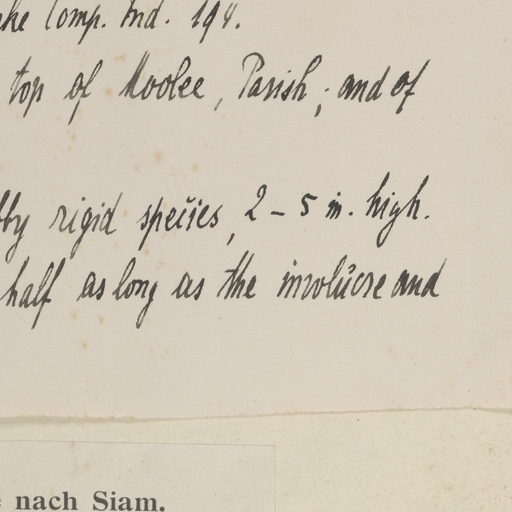 Comp. Ind. 194.
top of Moolee, Parish; and of
rigid species, 2-5 in. high.
half as long as the involucre and
nach Siam.